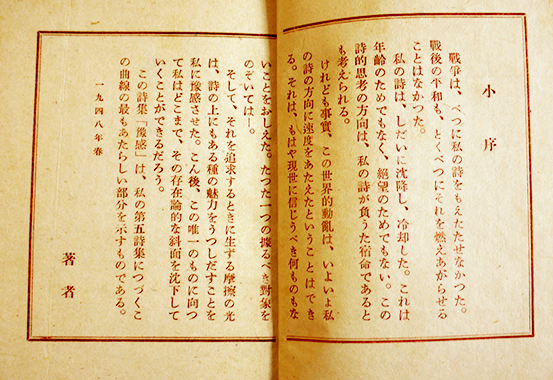 小序
戰爭は、べつに私の詩をもえたたせなかつた。
戰後の平和も、とくべつにそれを燃えあがらせる
ことはなかつた。
私の詩は、しだいに沈降し、冷却した。これは
年齡のためでもなく、絕望のためでもない。この
詩的思考の方向は、私の詩が負うた宿命であると
も考えられる。
けれども事實、この世界的動亂は、いよいよ私
の詩の方向に速度をあたえたということはでき
る。それは、もはや現世に信じうべき何ものもな
いことをおしえた。たつた一つの據るべき對象を
のぞいては—。
そして、それを追求するときに生ずる摩擦の光
は、詩の上にもある種の魅力をうつしだすことを
私に豫感させた。こん後、この唯一のものに向つ
て私はどこまで、その存在論的な斜面を沈下して
いくことができるだろう。
この詩集「豫感」は、私の第五詩集につづくこ
の曲線の最もあたらしい部分を示すものである。
一九四八年春
著者